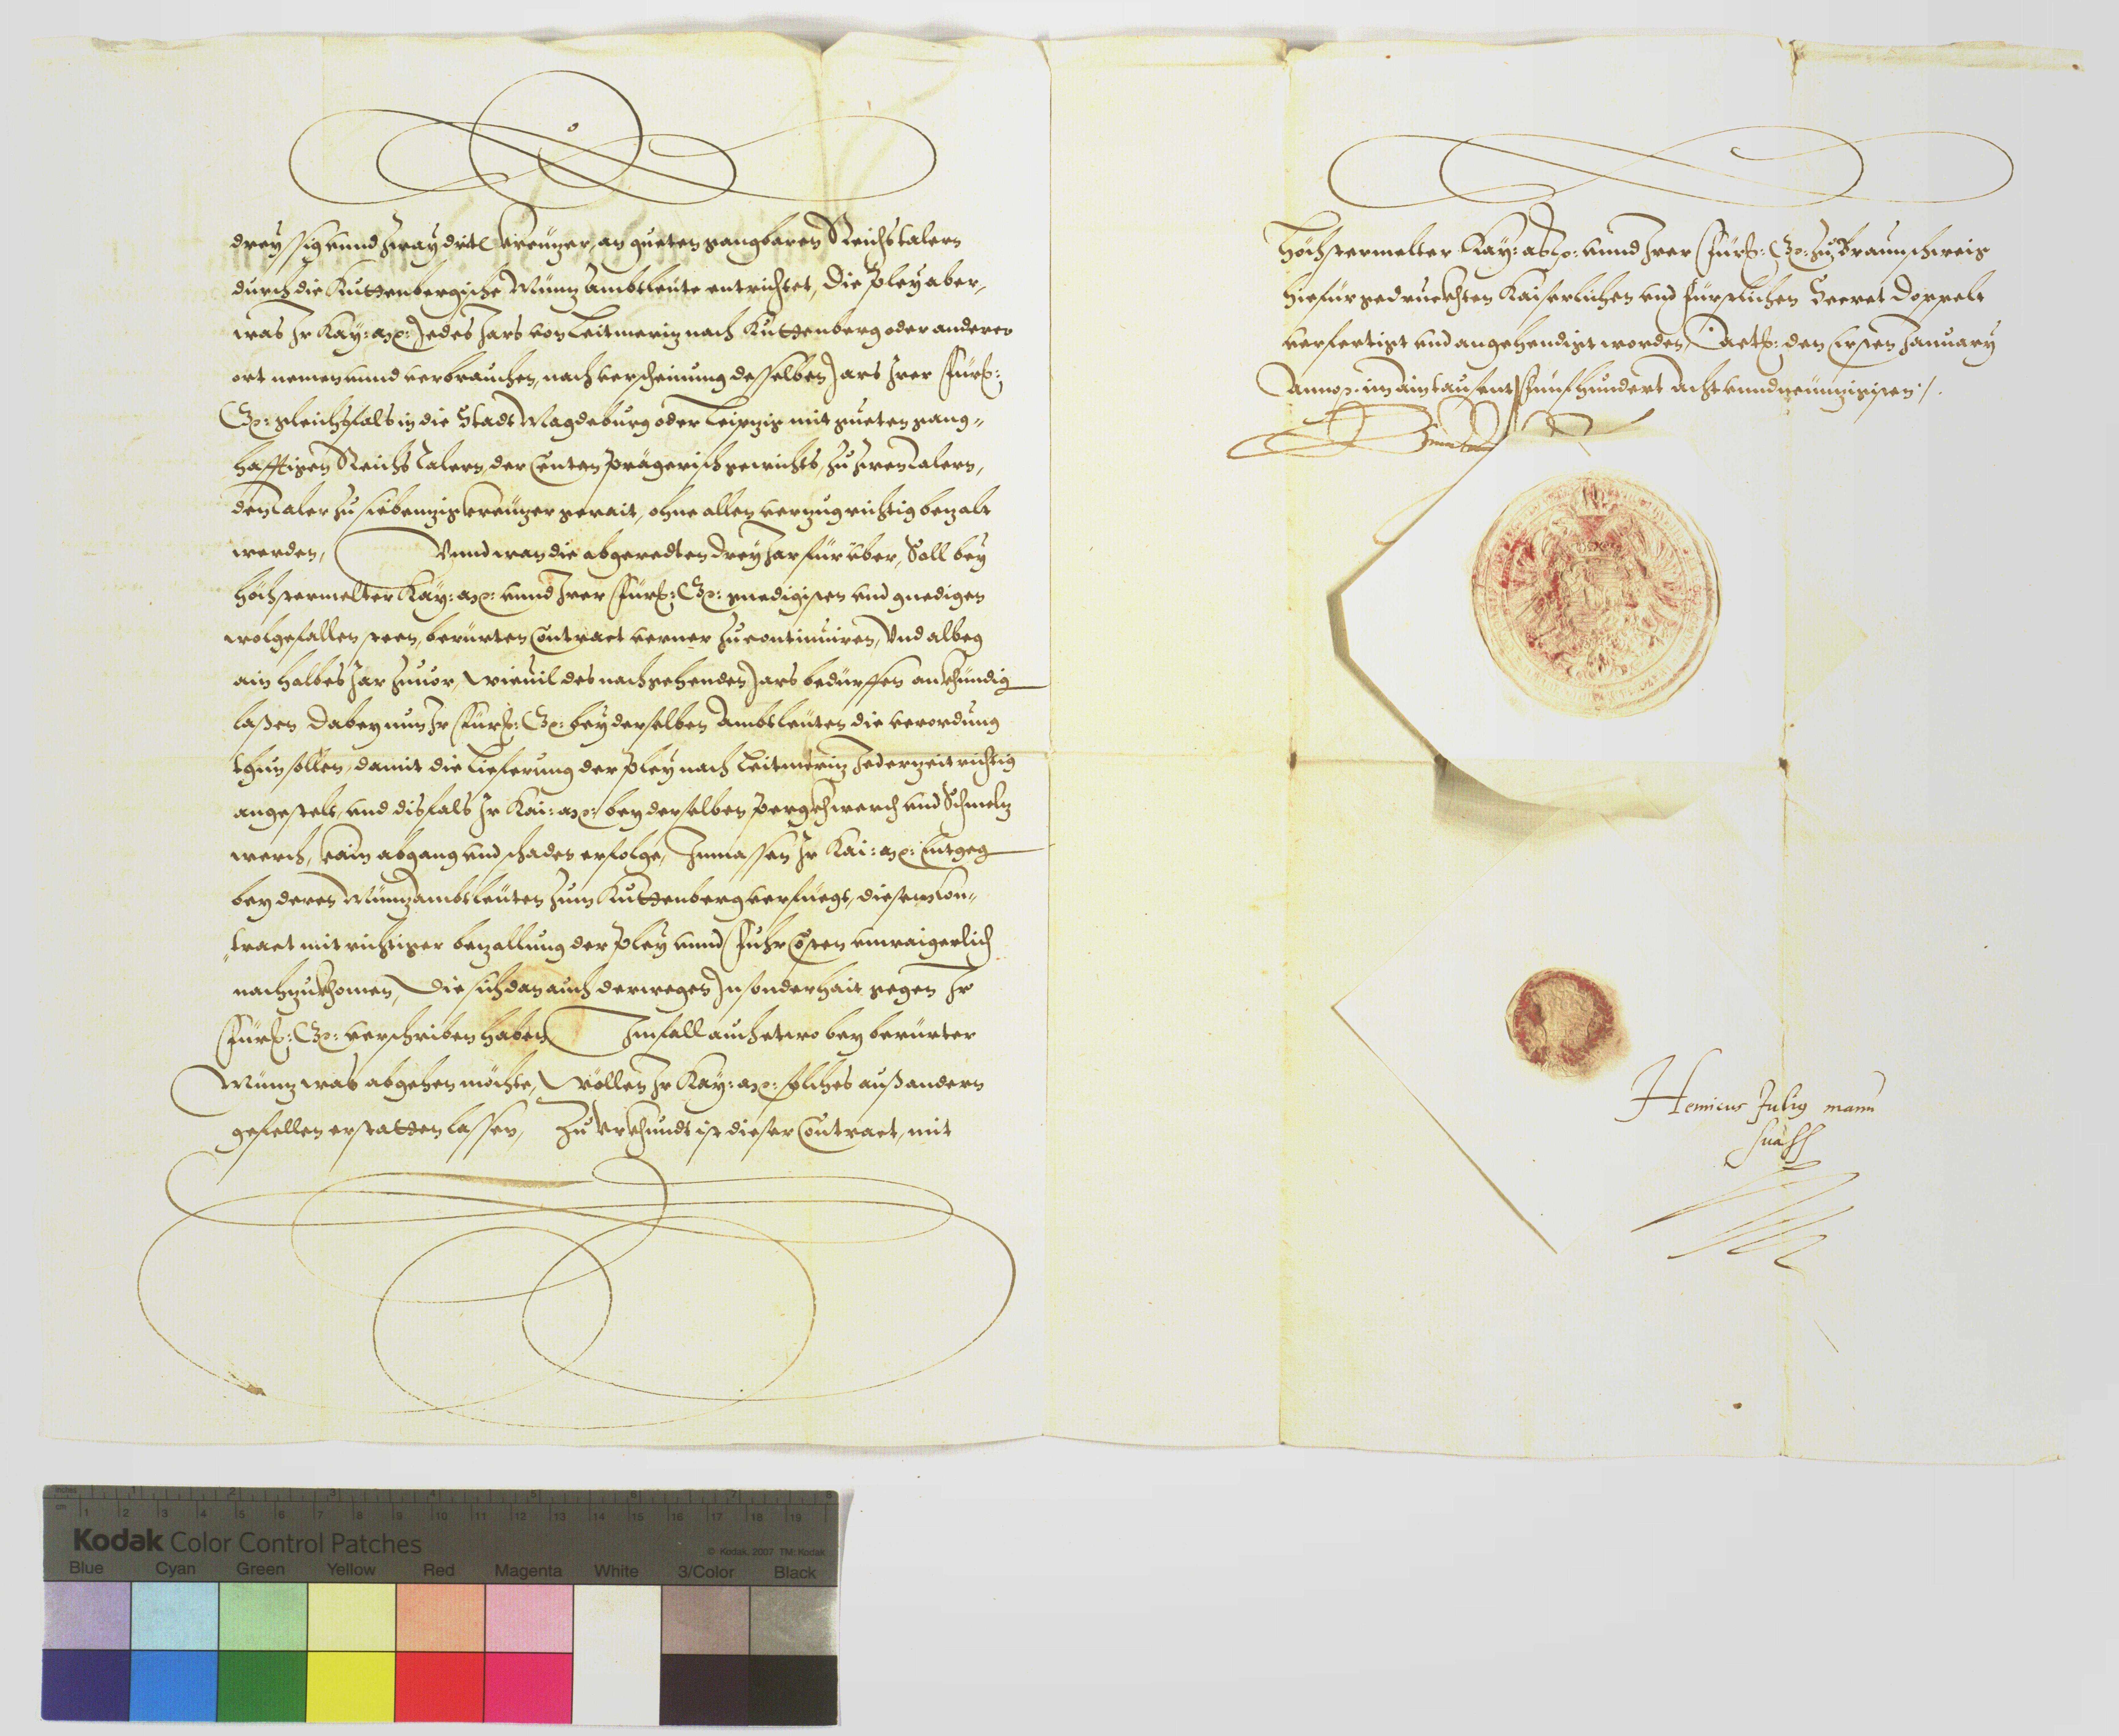 dreyssig vnnd zway drite Kreuzer, an gueten gangbaren Reichstalern
durch die Kuttenbergische Münz Ambtleute entrichtet, Die Pley aber,
was Ir Kay: Mt: Jedes Jars von Leitmeriz nach Kuttenberg oder anderer
ort nemen vnnd verbrauchen, nach verscheinung desselben Jars Irer Fürst:
Gn: gleichsfals in die Stadt Magdeburg oder Leipzig mit gueten gang-
hafftigen Reichs Talern, der Centen prägerisch gewichts, zu zwen Talern,
den Taler zu siebenzig Kreuzer gerait, ohne allen verzug richtig bezalt
werden, Vnnd wan die abgeredten drey Jar für über, Soll bey
höchsternelter Kay: Mt: vnnd Irer Fürst: Gn: gnedigisten vnd gnedigen
wolgefallen steen, berürten Contract verner zu continuiren, Vnd albeg
ain halbes Jar zuuor, wieuil des nachgehenden Jars bedürffen ankhündig
laßen Dabey nun Ir Fürst: Gn: bey derselben Ambtleuten die verordung
thun sollen, damit die Lieferung der Pley nach Leitmeriz Jederzeit richtig
angestelt, vnd disfals Ir Kai: Mt: bey derselben Pergkhwerch vnd Schmelz
werch, kain abgang vnd schaden erfolge, Inmassen Ir Kai: Mt: Entgeg
bey deren Münz Ambtleuten zum Kuttenberg verfüegt, diesem Con-
tract mit richtiger bezallung der Pley vnnd Fuhr Costen vnwaigerlich
nachzukhomen, Die sich dan auch derwegen Insonderhait gegen Ir
Fürst: Gn: verschriben haben Im fall auch etwo bey berürter
Münz was abgehen möchte, wöllen Ir Kay: Mt: solches auß andern
gefellen erstatten lassen, Zu Vrkhundt ist dieser Contract, mit
Höchsternelter Kay: Mt: vnnd Irer Fürst: Gn: zu Braunschweig
hiefür gedruckhten Kaiserlichen vnd Fürstlichen Secret Doppelt
verfertigt vnd angehendigt worden, Act: den Ersten January
Anno im aintausent Fünfhundert Acht vnndneunzigisten /.
Henricus Julius manu
sua ss
Kodak Color Control Patches
© Kodak, 2007 TM: Kodak
inches 1 2 3 4 5 6 7 8
cm 1 2 3 4 5 6 7 8 9 10 11 12 13 14 15 16 17 18 19
Blue Cyan Green Yellow Red Magenta White 3/Color Black